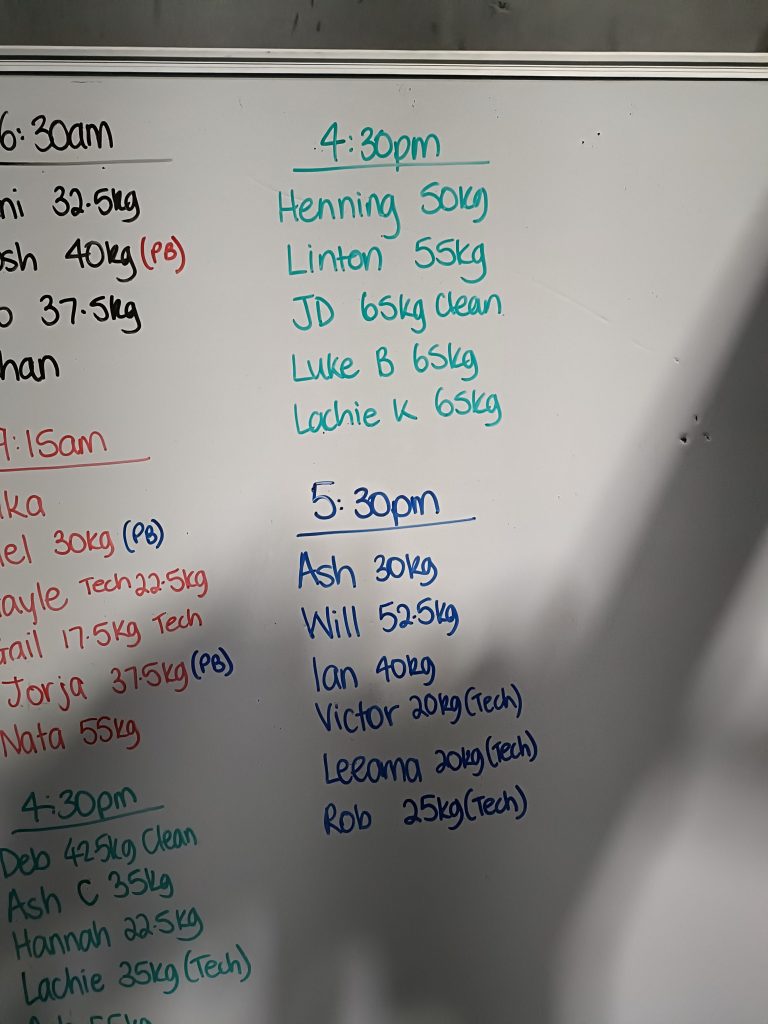 6:30am
ni 32.5kg
osh 40kg (PB)
o 37.5kg
han
9:15am
ka
el 30kg (PB)
ayle Tech 22.5kg
Gail 17.5kg Tech
Jorja 37.5kg (PB)
Nata 55kg
4:30pm
Deb 42.5kg Clean
Ash C 35kg
Hannah 22.5kg
Lachie 35kg (Tech)
55kg
4:30pm
Henning 50kg
Linton 55kg
JD 65kg Clean
Luke B 65kg
Lachie K 65kg
5:30pm
Ash 30kg
Will 52.5kg
Ian 40kg
Victor 20kg (Tech)
Leeama 20kg (Tech)
Rob 25kg (Tech)